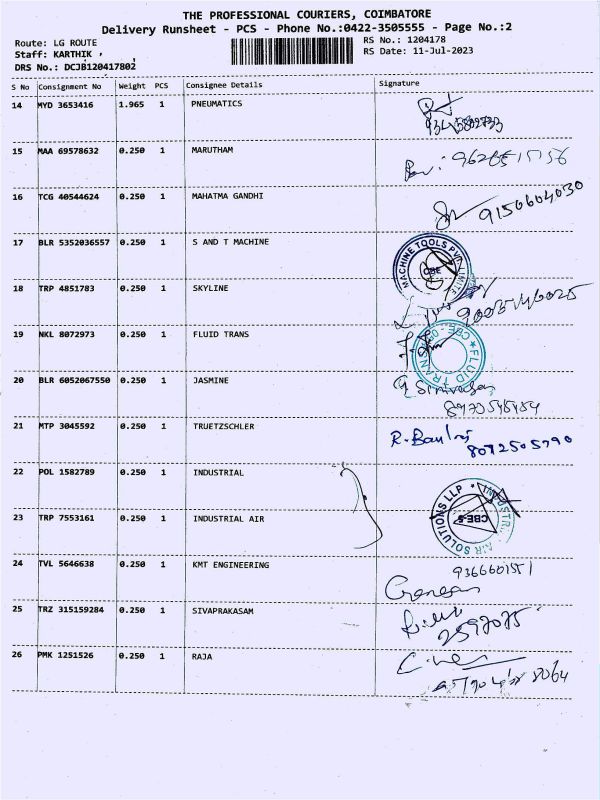 THE PROFESSIONAL COURIERS, COIMBATORE
Delivery Runsheet - PCS - Phone No.:0422-3505555 - Page No.:2
Route: LG ROUTE RS No.: 1204178
Staff: KARTHIK , RS Date: 11-Jul-2023
DRS No.: DCJB120417802
S No Consignment No Weight PCS Consignee Details Signature
14 MYD 3653416 1.965 1 PNEUMATICS
15 MAA 69578632 0.250 1 MARUTHAM
16 TCG 40544624 0.250 1 MAHATMA GANDHI 9150604030
17 BLR 5352036557 0.250 1 S AND T MACHINE MACHINE TOOLS PVT LIMITE CBE
18 TRP 4851783 0.250 1 SKYLINE
19 NKL 8072973 0.250 1 FLUID TRANS FLUID TRAN
20 BLR 6052067550 0.250 1 JASMINE
21 MTP 3045592 0.250 1 TRUETZSCHLER 8072505790
22 POL 1582789 0.250 1 INDUSTRIAL
23 TRP 7553161 0.250 1 INDUSTRIAL AIR INDUSTR. AIR SOLUTIONS LLP CBE-5
24 TVL 5646638 0.250 1 KMT ENGINEERING 9366601551
Ganesan
25 TRZ 315159284 0.250 1 SIVAPRAKASAM
26 PMK 1251526 0.250 1 RAJA